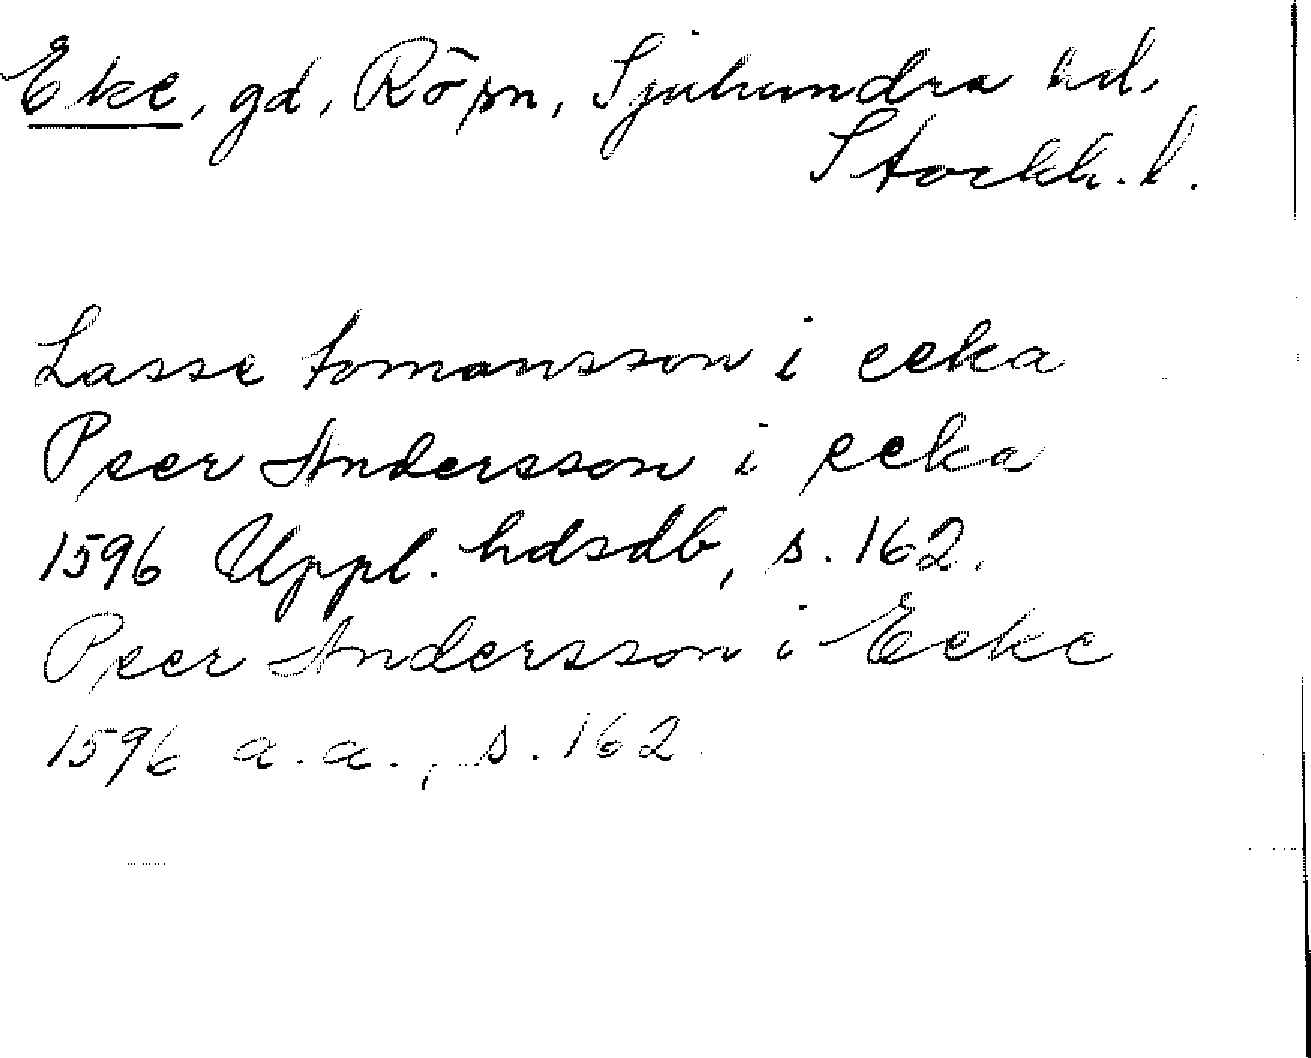 Eke, gd, Rö sn, Sjuhundra hd,
Stockh. l.
Lasse tomansson i eeka
Peer Andersson i eeka
1596 Uppl. hdsdb, s. 162.
Peer Andersson i Eeke
1596 a.a., s. 162.